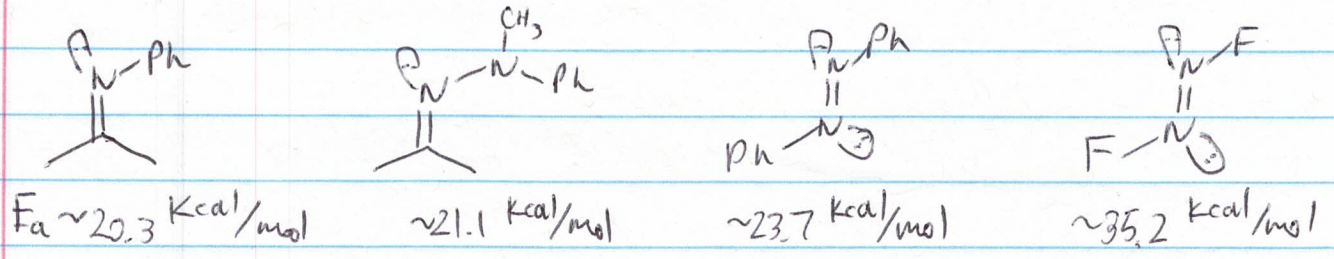 CH3
N-Ph N-N-Ph N-Ph N-F
N
Ph-N F-N
Ea ~20.3 Kcal/mol ~21.1 Kcal/mol ~23.7 Kcal/mol ~35.2 Kcal/mol